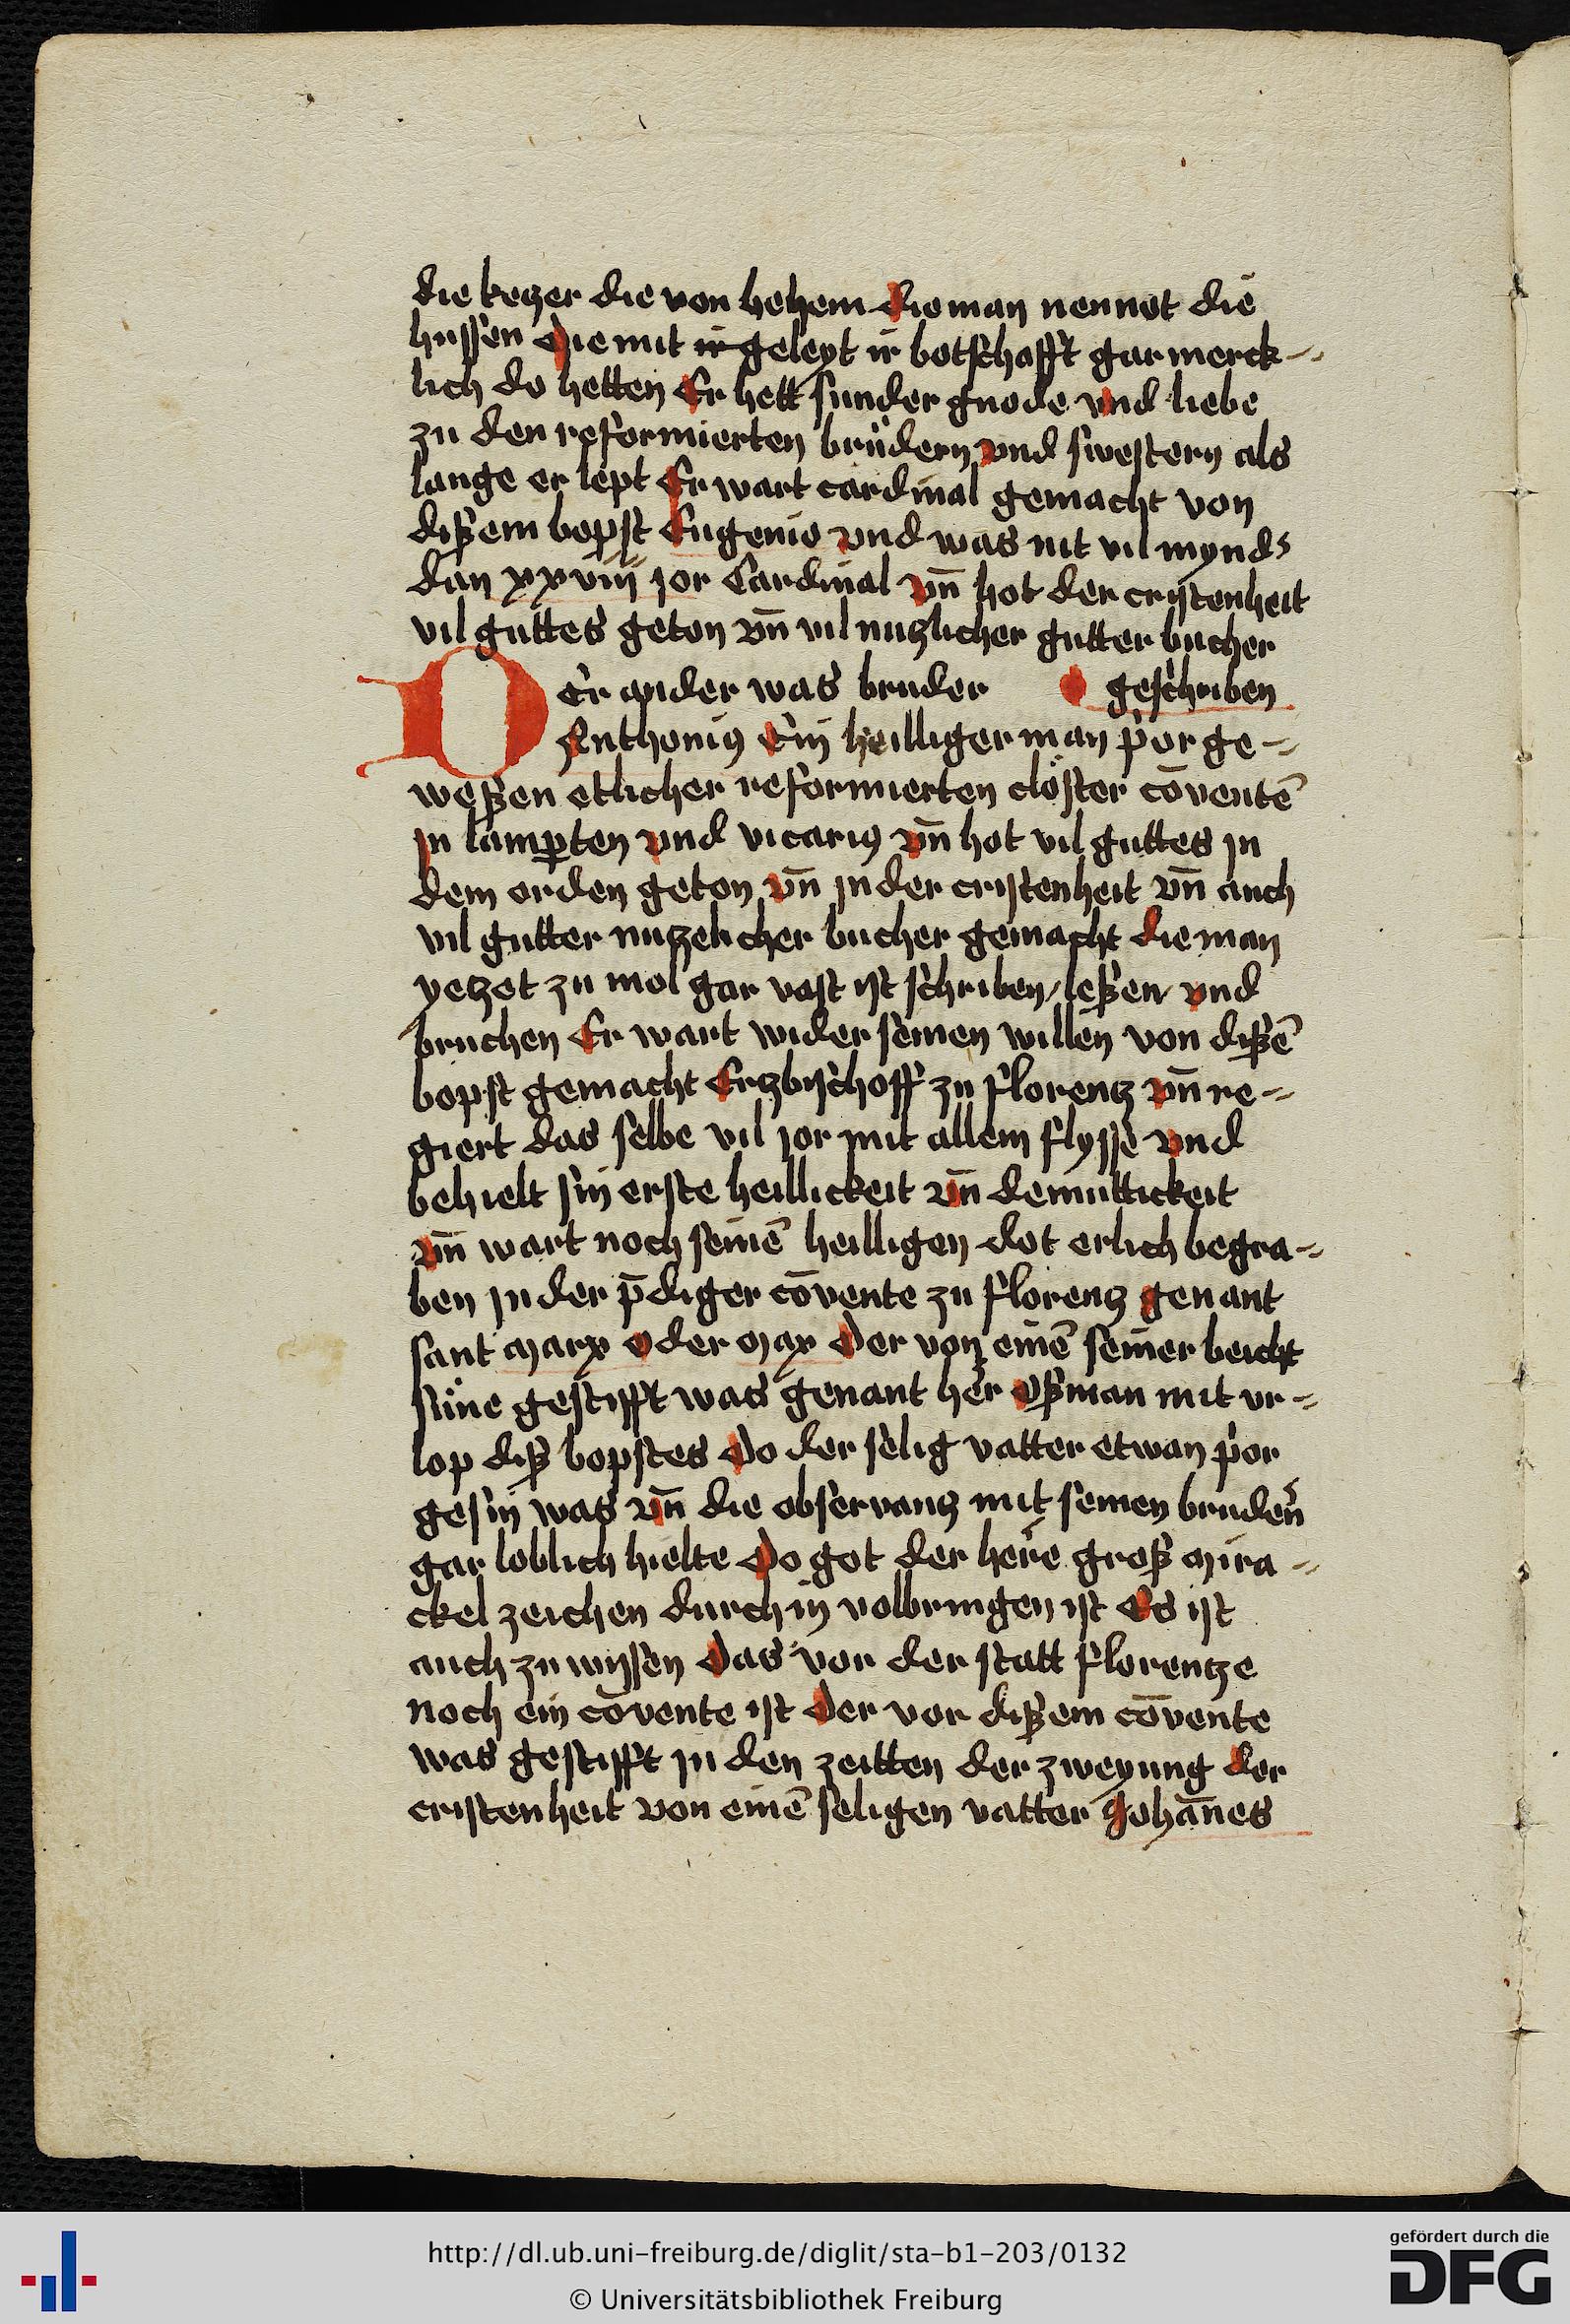 die ketzer die von behem die man nennet die
hussen Die mit ir geleyt ir botschafft gar merck-
lich do hetten Er hett sunder gnode vnd liebe
zu den reformierten brüdern vnd swestern als
lange er lept Er wart cardinal gemacht von
dißem bopst Eugenio vnd was nit vil mynd
dan xxviij jor Cardinal vn̄ hot der cristenheit
vil guttes geton vn̄ vil nutzlicher gutter bucher
geschriben
Der ander was bruder
Anthonius Ein heilliger man prior ge-
weßen etlicher reformierten clöster cōventē
jn lamparten vnd vicarius vn̄ hot vil guttes jn
dem orden geton vn̄ jn der cristenheit vn̄ auch
vil gutter nutzelicher bucher gemacht die man
yetzet zu mol gar vast ist schriben leßen vnd
bruchen Er wart wider seinen willen von dißē
bopst gemacht Ertzbischoff zu florentz vn̄ re-
giert das selbe vil jor mit allem flysse vnd
behielt sin erste heillickeit vn̄ demuttickeit
vn̄ wart noch seinē heilligen dot erlich begra-
ben jn der p̄diger cōvente zu florentz genant
sant marx oder max Der von einē seiner beicht
süne gestifft was genant her Oßman mit vr-
lop diß bopstes Do der selig vatter etwan prior
gesin was vn̄ die observantz mit seinen brudern
gar loblich hielte Do got der here groß mira-
ckel zeichen durch in volbringen ist Es ist
auch zu wissen Das vor der statt florentze
noch ein cōvente ist Der vor dißem cōvente
was gestifft jn den zeitten der zweyung der
cristenheit von einē seligen vatter Johānes
http://dl.ub.uni-freiburg.de/diglit/sta-b1-203/0132
© Universitätsbibliothek Freiburg
gefördert durch die
DFG